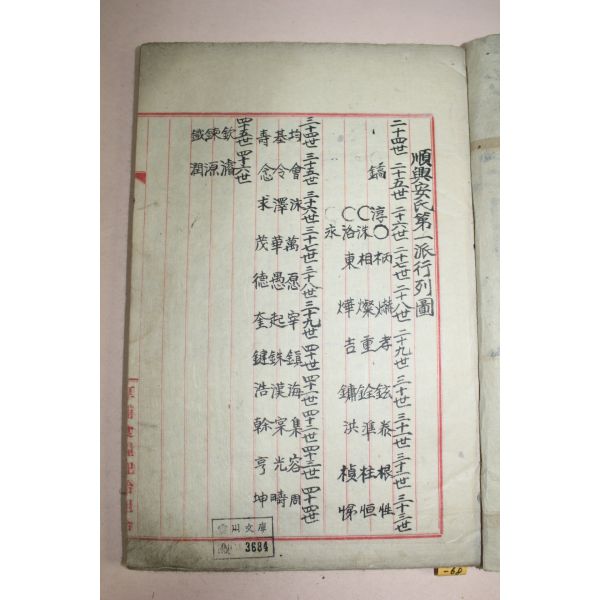 順興安氏第一派行列圖
二十四世 二十五世 二十六世 二十七世 二十八世 二十九世 三十世 三十一世 三十二世 三十三世
鐈 淳 柄 孝 鉉 泰 根 性
洙 相 燦 重 銓 準 柱 恒
洛 東 燁 吉 鏞 洪 楨 悌
永
三十四世 三十五世 三十六世 三十七世 三十八世 三十九世 四十世 四十一世 四十二世 四十三世 四十四世
均 會 洙 萬 愿 宰 鎭 海 集 容 周
基 令 澤 華 愚 起 銖 漢 寀 光 疇
壽 念 求 茂 德 奎 鍵 浩 幹 亨 坤
四十五世 四十六世
欽
鍊 源
鐵 潤
文庫
3684
-60